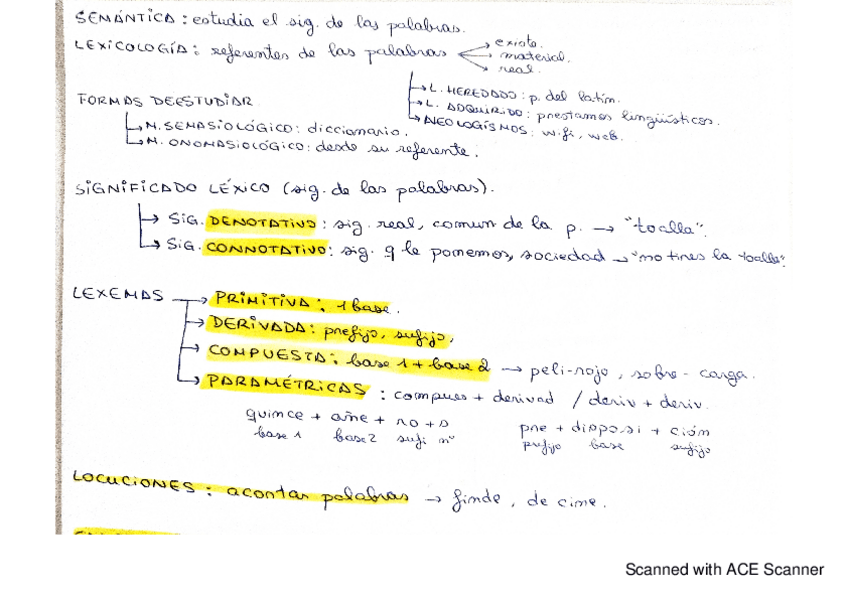 SEMÁNTICA: estudia el sig. de las palabras.
LEXICOLOGÍA: referentes de las palabras → existe.
→ material.
→ real.
→ L. HEREDADO: p. del latín.
→ L. ADQUIRIDO: prestamos lingüísticos.
→ NEOLOGÍSMOS: wifi, web.
FORMAS DE ESTUDIAR
→ M. SEMASIOLÓGICO: diccionario.
→ M. ONOMASIOLÓGICO: desde su referente.
SIGNIFICADO LÉXICO (sig. de las palabras).
→ SIG. DENOTATIVO: sig. real, comun de la p. → "toalla".
→ SIG. CONNOTATIVO: sig. q le ponemos, sociedad → "no tires la toalla".
LEXEMAS → PRIMITIVA: 1 base.
→ DERIVADA: prefijo, sufijo,
→ COMPUESTA: base 1 + base 2 → peli-rojo, sobre-carga.
→ PARAMÉTRICAS: compues + derivad / deriv + deriv.
quince + añe + ro + s
base 1 base 2 sufi nº
pre + disposi + ción
prefijo base sufijo
LOCUCIONES: acortar palabras → finde, de cine.
Scanned with ACE Scanner